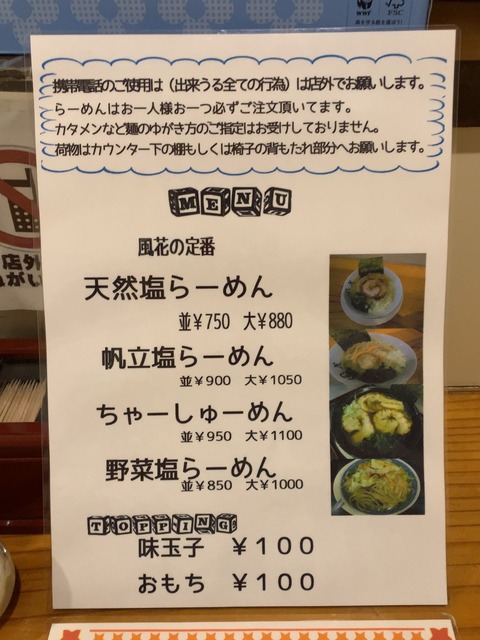 WWF
FSC
携帯電話のご使用は(出来うる全ての行為)は店外でお願いします。
らーめんはお一人様お一つ必ずご注文頂いてます。
カタメンなど麺のゆがき方のご指定はお受けしておりません。
荷物はカウンター下の棚もしくは椅子の背もたれ部分へお願いします。
MENU
風花の定番
天然塩らーめん
並¥750 大¥880
帆立塩らーめん
並¥900 大¥1050
ちゃーしゅーめん
並¥950 大¥1100
野菜塩らーめん
並¥850 大¥1000
TOPPING
味玉子 ¥100
おもち ¥100
店外